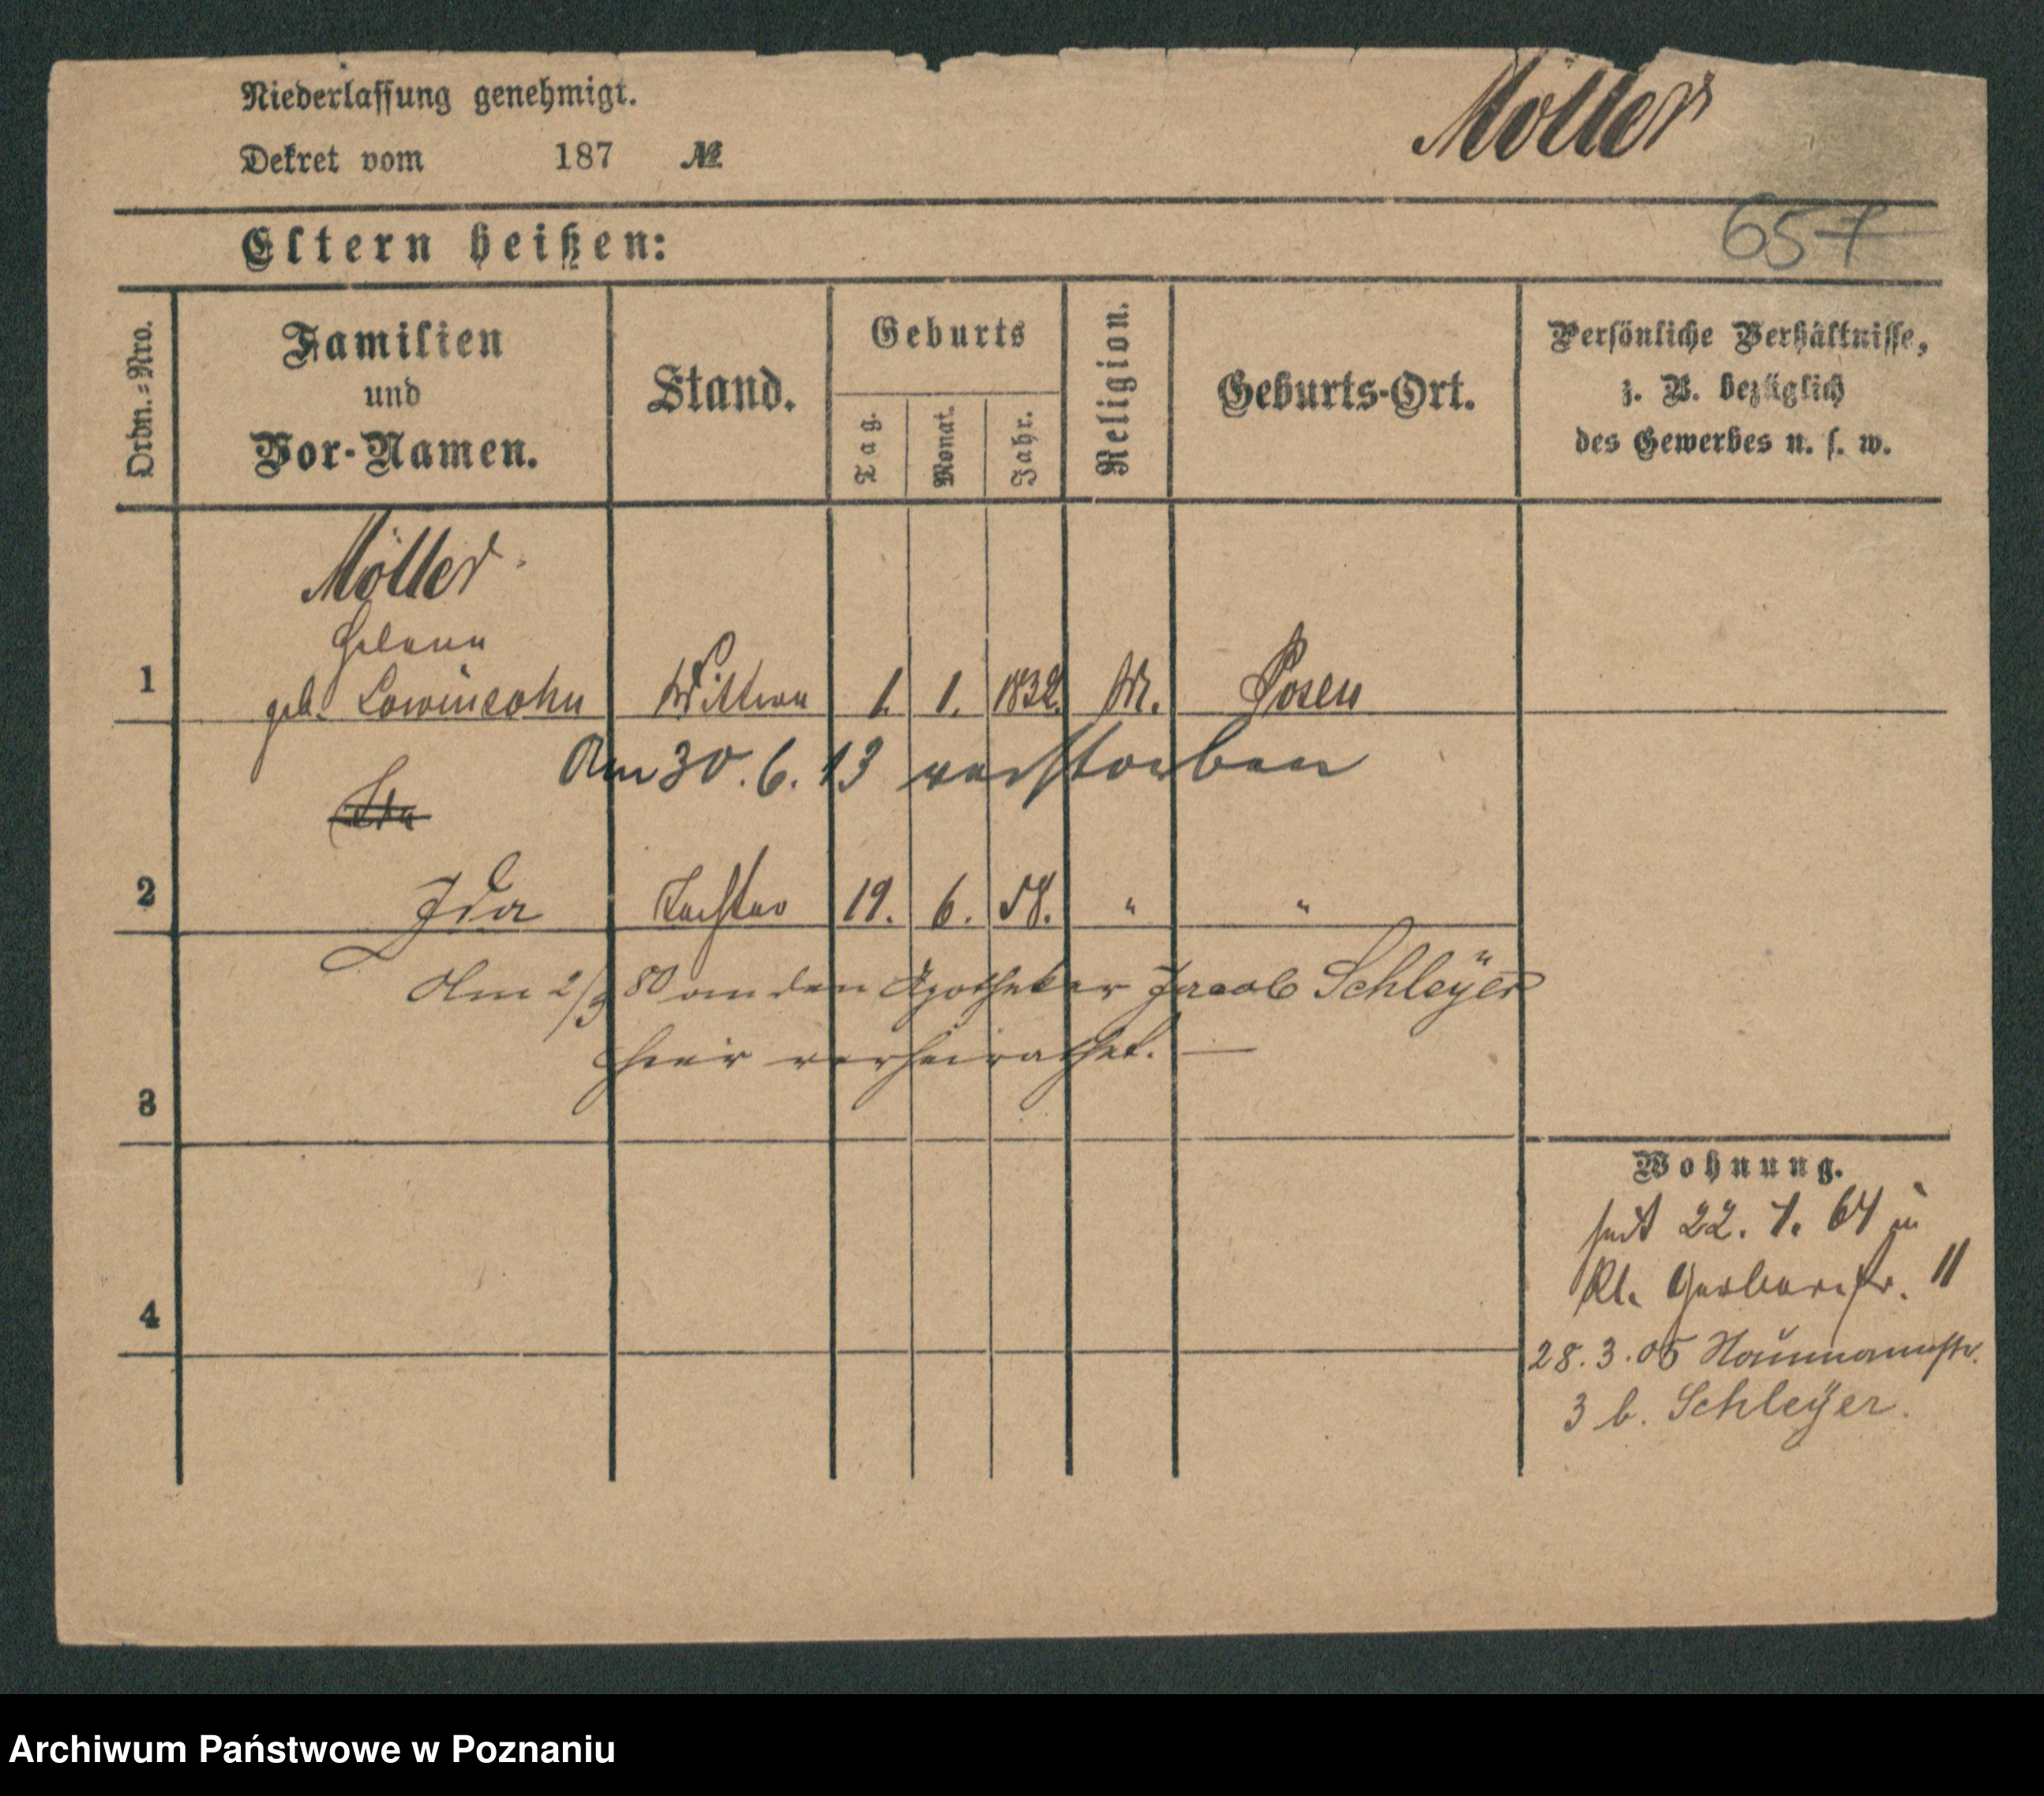 Niederlassung genehmigt.
Dekret vom 187 №
Möller
657
Eltern heißen:
Ordn.-Nro.
Familien
und
Vor-Namen.
Stand.
Geburts
Tag.
Monat.
Jahr.
Religion.
Geburts-Ort.
Persönliche Verhältnisse,
z. B. bezüglich
des Gewerbes u. s. w.
Möller
1 geb. Lowinsohn Wittwe 1. 1. 1832. M. Posen
Am 30. 6. 13 verstorben
2 Ida Tochter 19. 6. 58. " "
Am 2/9 80 an den Apotheker Jacob Schleyer
hier verheirathet. —
3
4
Wohnung.
seit 22. 1. 64 in
Kl. Gerberstr. 11
28. 3. 05 Naumannstr.
3 b. Schleyer.
Archiwum Państwowe w Poznaniu